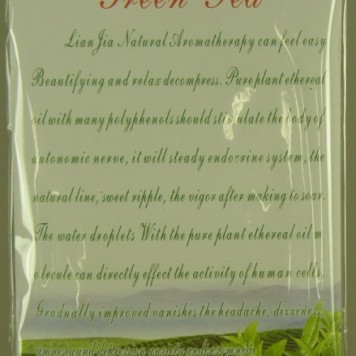 Green Tea
LianJia Natural Aromatherapy can feel easy
Beautifying and relax decompress. Pure plant ethereal
oil with many polyphenols should stimulate the body of
autonomic nerve, it will steady endocrine system, the
natural line, sweet ripple, the vigor after making to soar.
The water droplets With the pure plant ethereal oil m
olecule can directly effect the activity of human cells.
Gradually improved vanishes the headache, dizziness,